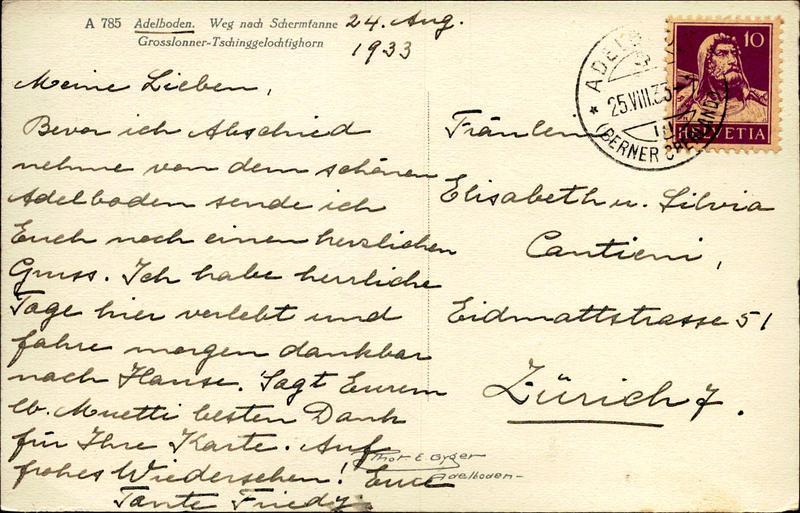 A 785 Adelboden. Weg nach Schermtanne
Grosslonner-Tschinggelochtighorn
24. Aug.
1933
Meine Lieben,
Bevor ich Abschied
nehme von dem schönen
Adelboden sende ich
Euch noch einen herzlichen
Gruss. Ich habe herrliche
Tage hier verlebt und
fahre morgen dankbar
nach Hause. Sagt Eurem
lb. Muetti besten Dank
für Ihre Karte. Auf
frohes Wiedersehen! Eure
Tante Friedy.
Phot E. Gyger
Adelboden-
Fräulein
Elisabeth u. Silvia
Cantieni,
Eidmattstrasse 51
Zürich 7.
25.VIII.33
(BERNER
10
HELVETIA